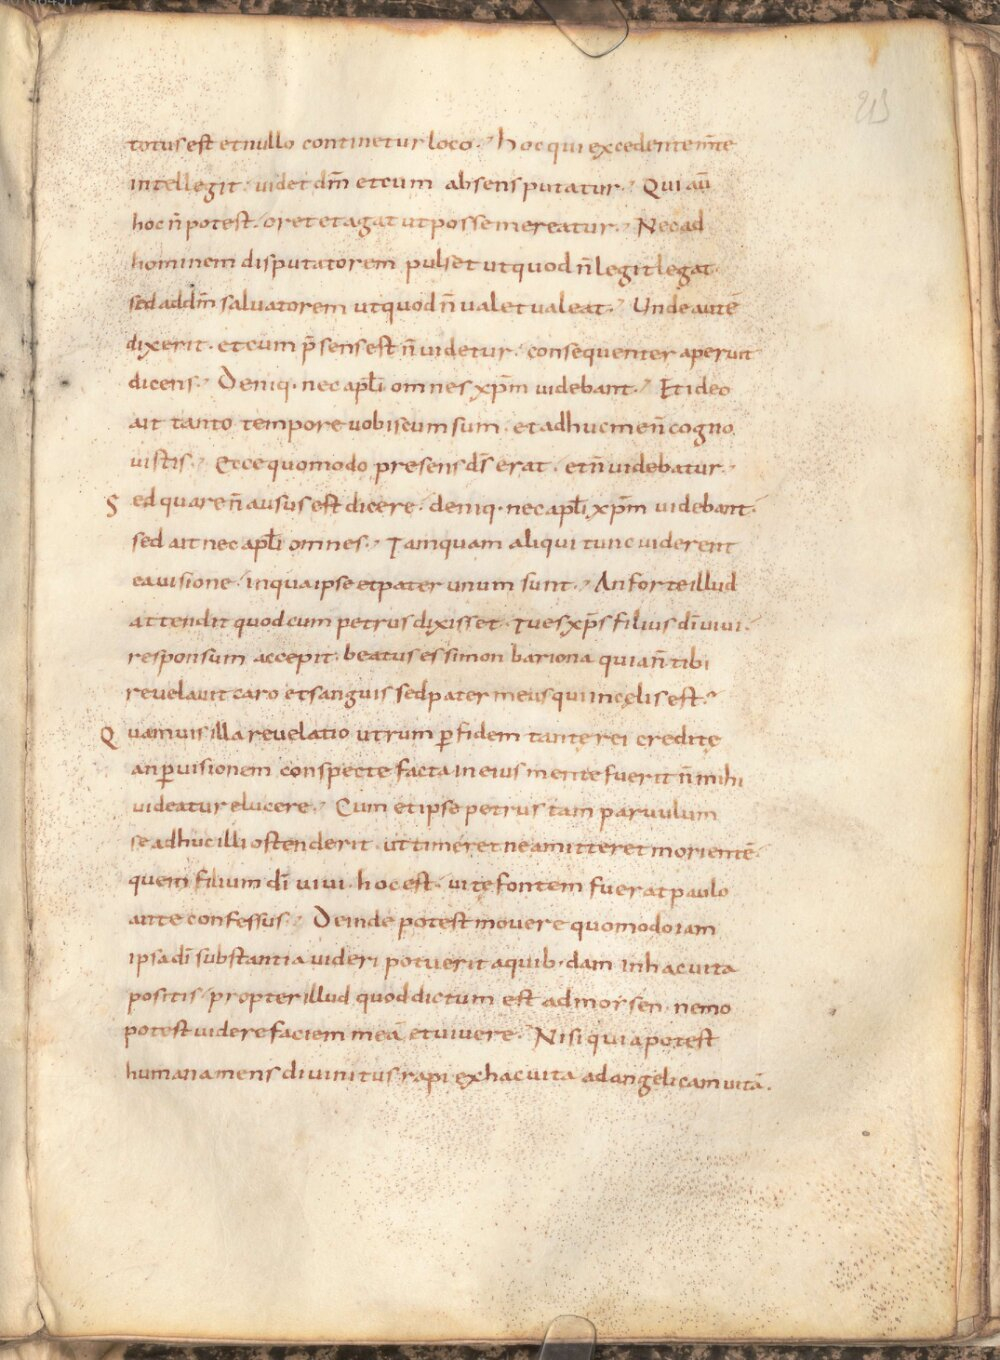 totus est et nullo continetur loco. hoc qui excedente m̅te
intellegit. videt dm̅ et cum absens putatur. Qui au̅
hoc n̅ potest. oret et agat ut posse mereatur. Nec ad
hominem disputatorem pulset ut quod n̅ legit legat.
sed ad dm̅ salvatorem ut quod n̅ valet valeat. Unde aute̅
dixerit. et cum p̅sens est n̅ videtur. consequenter aperuit
dicens. Deniq. nec apl̅i omnes xp̅m videbant. Et ideo
ait tanto tempore vobiscum sum. et adhuc me n̅ cogno
vistis. Ecce quomodo presens ds̅ erat. et n̅ videbatur.
Sed quare n̅ ausus est dicere. deniq. nec apl̅i xp̅m videbant.
sed ait nec apl̅i omnes. Tamquam aliqui tunc viderent
ea visione. in qua ipse et pater unum sunt. An forte illud
attendit quod cum petrus dixisset. tu es xp̅s filius di̅ vivi.
responsum accepit. beatus es simon bariona quia n̅ tibi
revelavit caro et sanguis sed pater meus qui in cęlis est.
Quamvis illa revelatio utrum p̲ fidem tantę rei creditę
an p̲ visionem conspectę facta in eius mente fuerit n̅ mihi
videatur elucere. Cum et ipse petrus tam parvulum
se adhuc illi ostenderit. ut timeret ne amitteret moriente̅.
quem filium di̅ vivi. hoc est. vitę fontem fuerat paulo
ante confessus. Deinde potest movere quomodo iam
ipsa di̅ substantia videri potuerit a quib.dam in hac vita
positis. propter illud quod dictum est ad morsen. nemo
potest videre faciem mea̅ et vivere. Nisi quia potest
humana mens divinitus rapi ex hac vita ad angelicam vita̅.